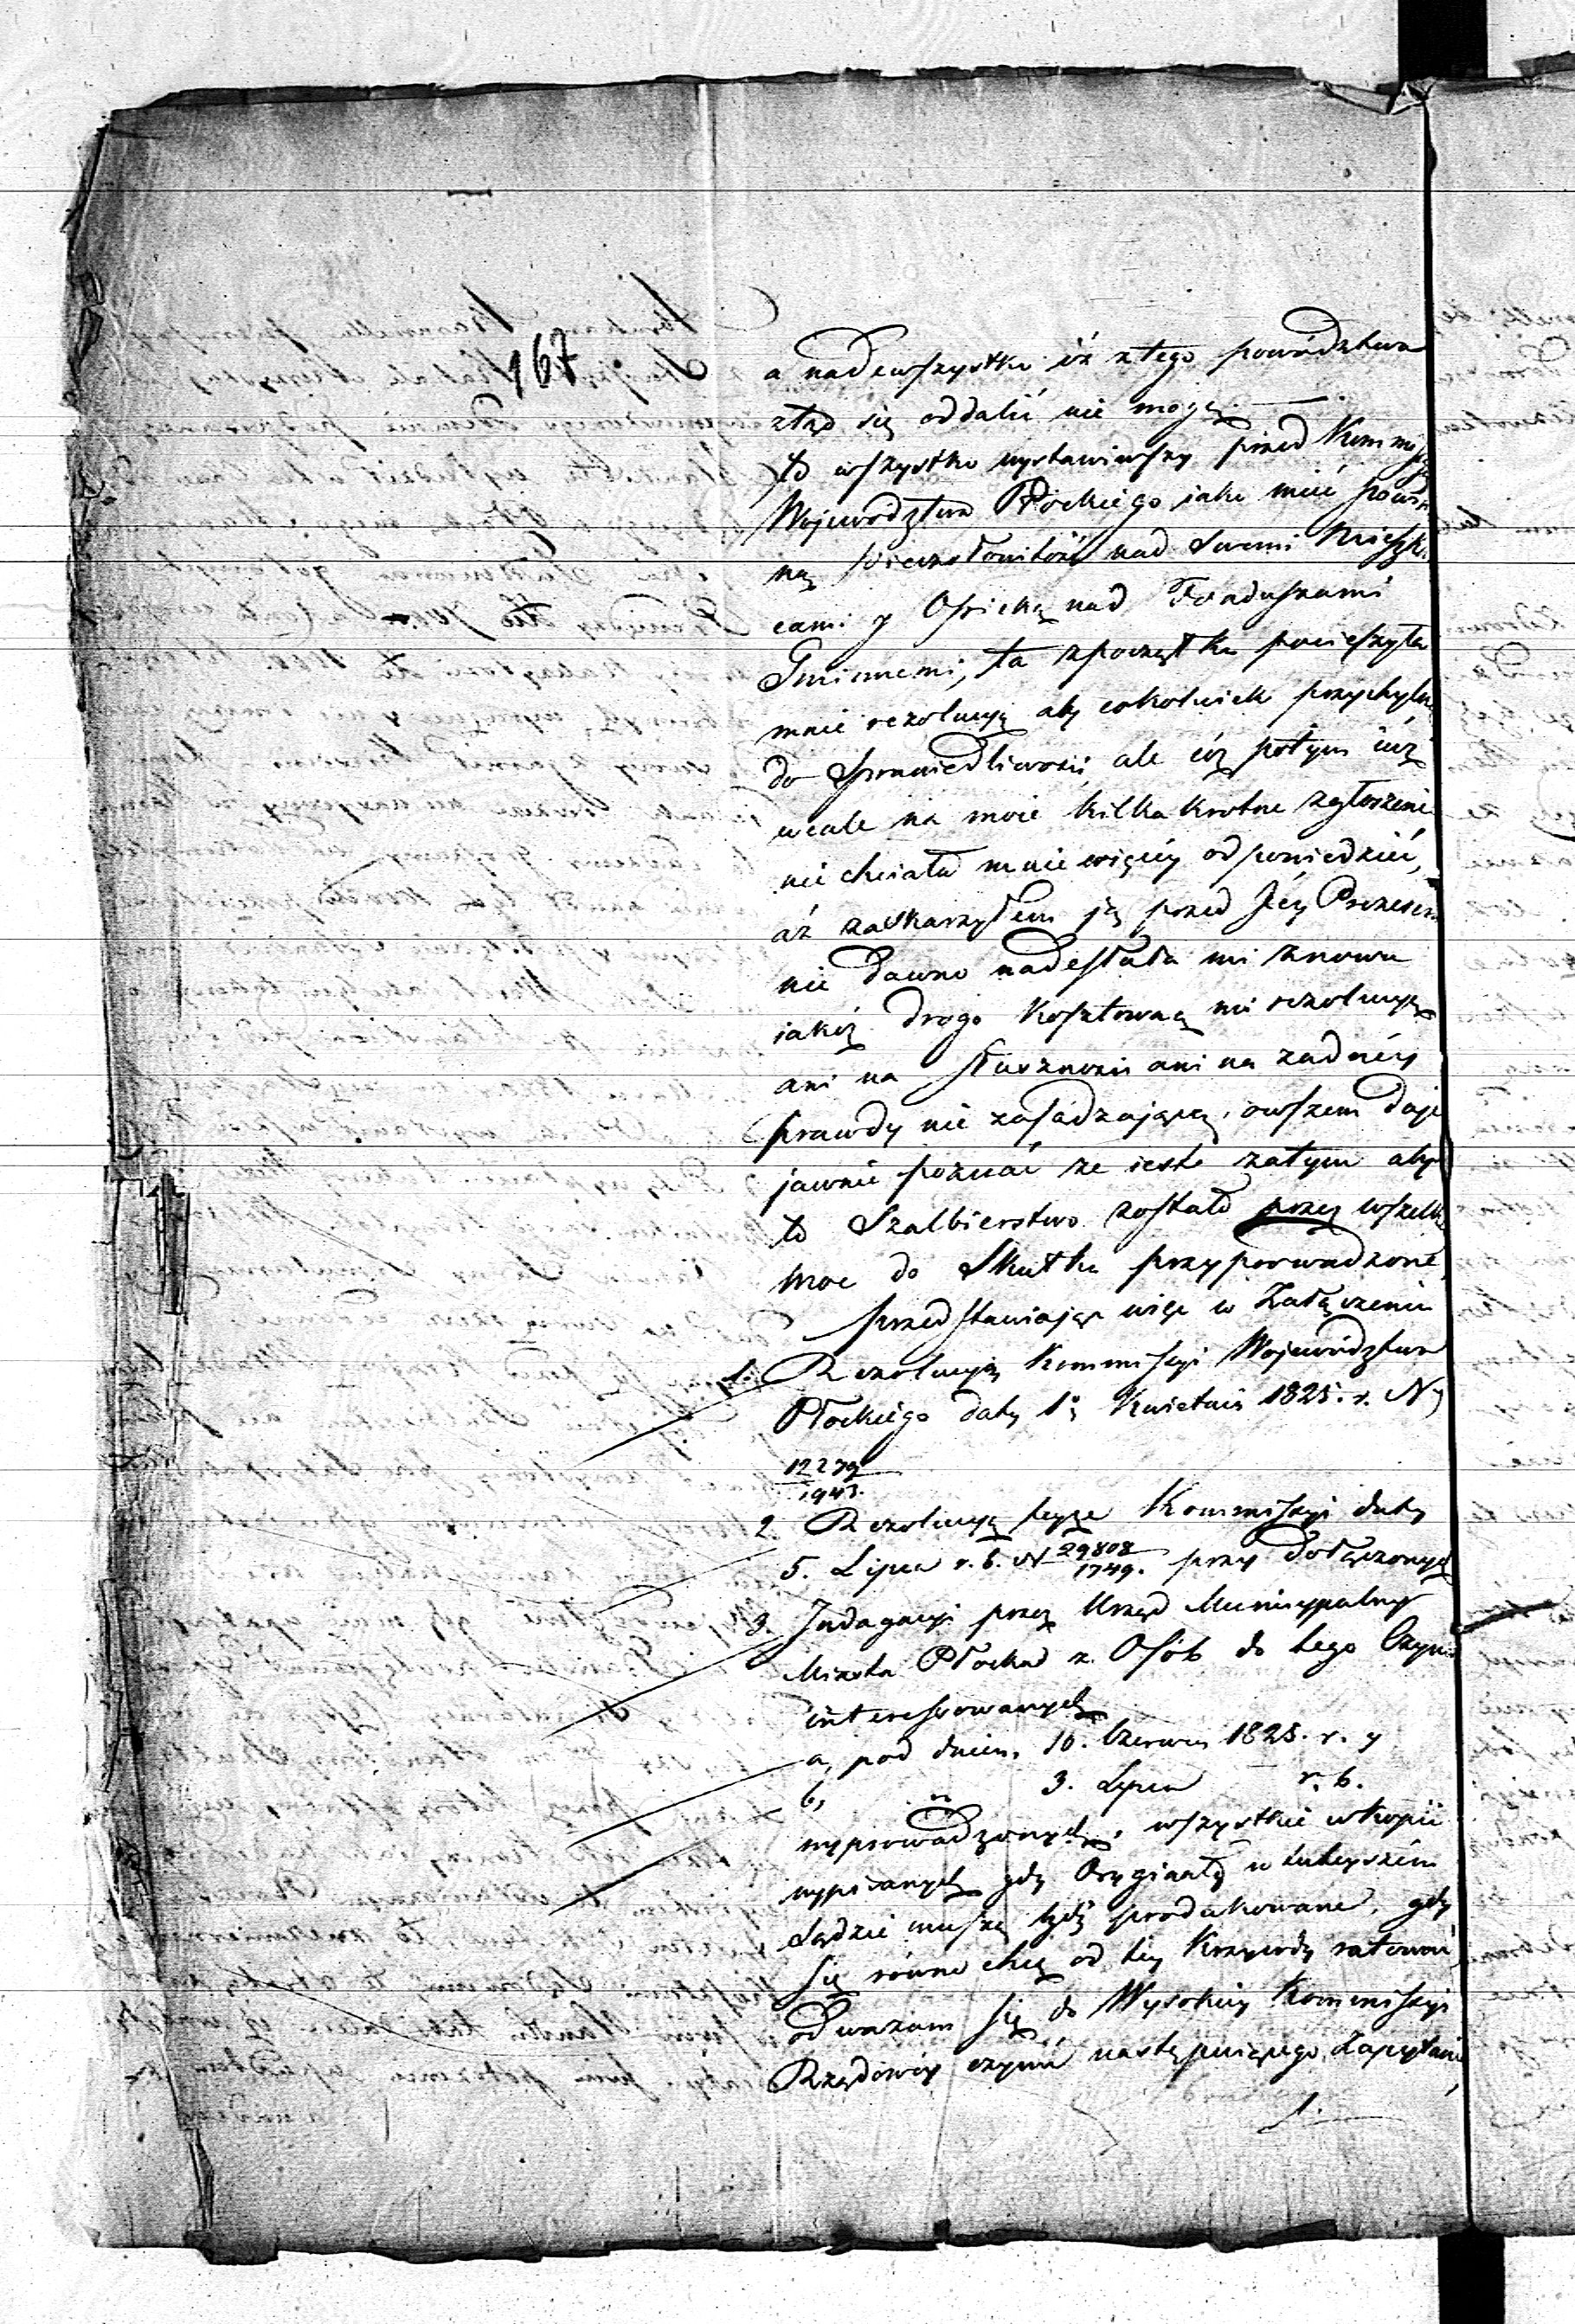 167
a nadewszystko iż z tego powództwa
ztąd się oddalić nie mogę. —
to wszystko wystawiwszy przed Kommissyą
Województwa Płockiego jako mieć powin
ną pieczołowitość nad Swemi Mieszk
cami y Opieką nad Funduszami
Gminnemi, ta zpoczątku pocieszyła
mnie rezolucyą aby cokolwiek przychylną
do Sprawiedliwości, ale cóż potym iuż
wcale na moie kilkakrotne zgłoszenie
nie chciała mnie więcéy odpowiedzieć,
áż zaskarzyłem ią przed Jéy Prezesem
nie dawno nadesłała mi znowu
iakąś drogo kosztowną mi rezolucyą
ani na słuszności ani na żadnéy
prawdy nie zasadzaiącą, owszem daje
jawnie poznać ze ieste zatym aby
to Szalbierstwo zostało przez wszelką
moc do Skutku przyprowadzone,
przedstawiając więc w Załączeniu
1. Rezolucyą Kommissyi Województwa
Płockiego daty 1º Kwietnia 1825. r. N
12279
1943.
2. Rezolucyą teyże Kommissyi daty
5. Lipca r. b. N 29808
1749. przy dołączonych
3. Indagacyi przez Urząd Municypalny
Miasta Płocka z Osób do tego Czynu
interessowanych
a, pod dniem 10. Czerwca 1825. r. y
b, " 3. Lipca r. b.
wyprowadzonych, wszystkie w kopii
wypisanych gdy Oryginały w tuteyszém
Sądzie muszą bydź produkowane, gdy
się równo chcę od téy Krzywdy ratować
odważam się do Wysokiéy Kommissyi
Rządowéy czynić następuiącego Zapytanie,
1.